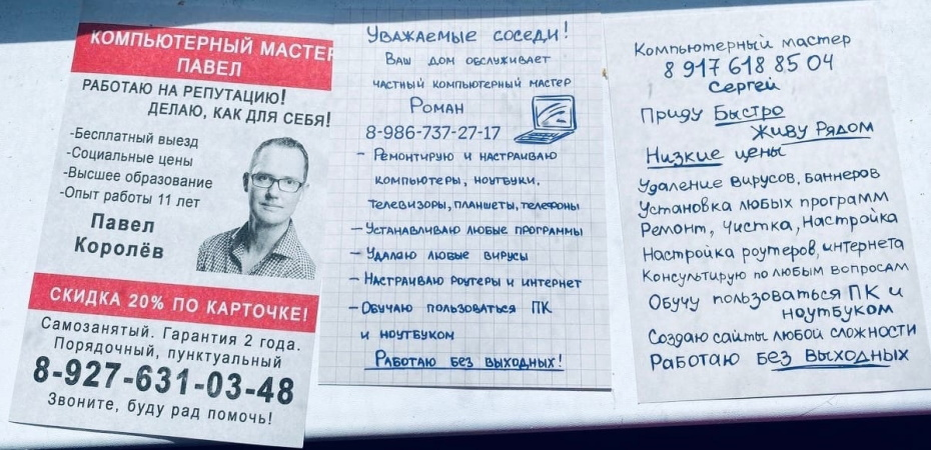 КОМПЬЮТЕРНЫЙ МАСТЕР
ПАВЕЛ
РАБОТАЮ НА РЕПУТАЦИЮ!
ДЕЛАЮ, КАК ДЛЯ СЕБЯ!
-Бесплатный выезд
-Социальные цены
-Высшее образование
-Опыт работы 11 лет
Павел
Королёв
СКИДКА 20% ПО КАРТОЧКЕ!
Самозанятый. Гарантия 2 года.
Порядочный, пунктуальный
8-927-631-03-48
Звоните, буду рад помочь!
Уважаемые соседи!
Ваш дом обслуживает
частный компьютерный мастер
Роман
8-986-737-27-17
- Ремонтирую и настраиваю
компьютеры, ноутбуки,
телевизоры, планшеты, телефоны
- Устанавливаю любые программы
- Удаляю любые вирусы
- Настраиваю роутеры и интернет
- Обучаю пользоваться ПК
и ноутбуком
Работаю без выходных!
Компьютерный мастер
8 917 618 85 04
Сергей
Приду Быстро
Живу Рядом
Низкие цены
Удаление вирусов, баннеров
Установка любых программ
Ремонт, Чистка, Настройка
Настройка роутеров, интернета
Консультирую по любым вопросам
Обучу пользоваться ПК и
ноутбуком
Создаю сайты любой сложности
Работаю без выходных